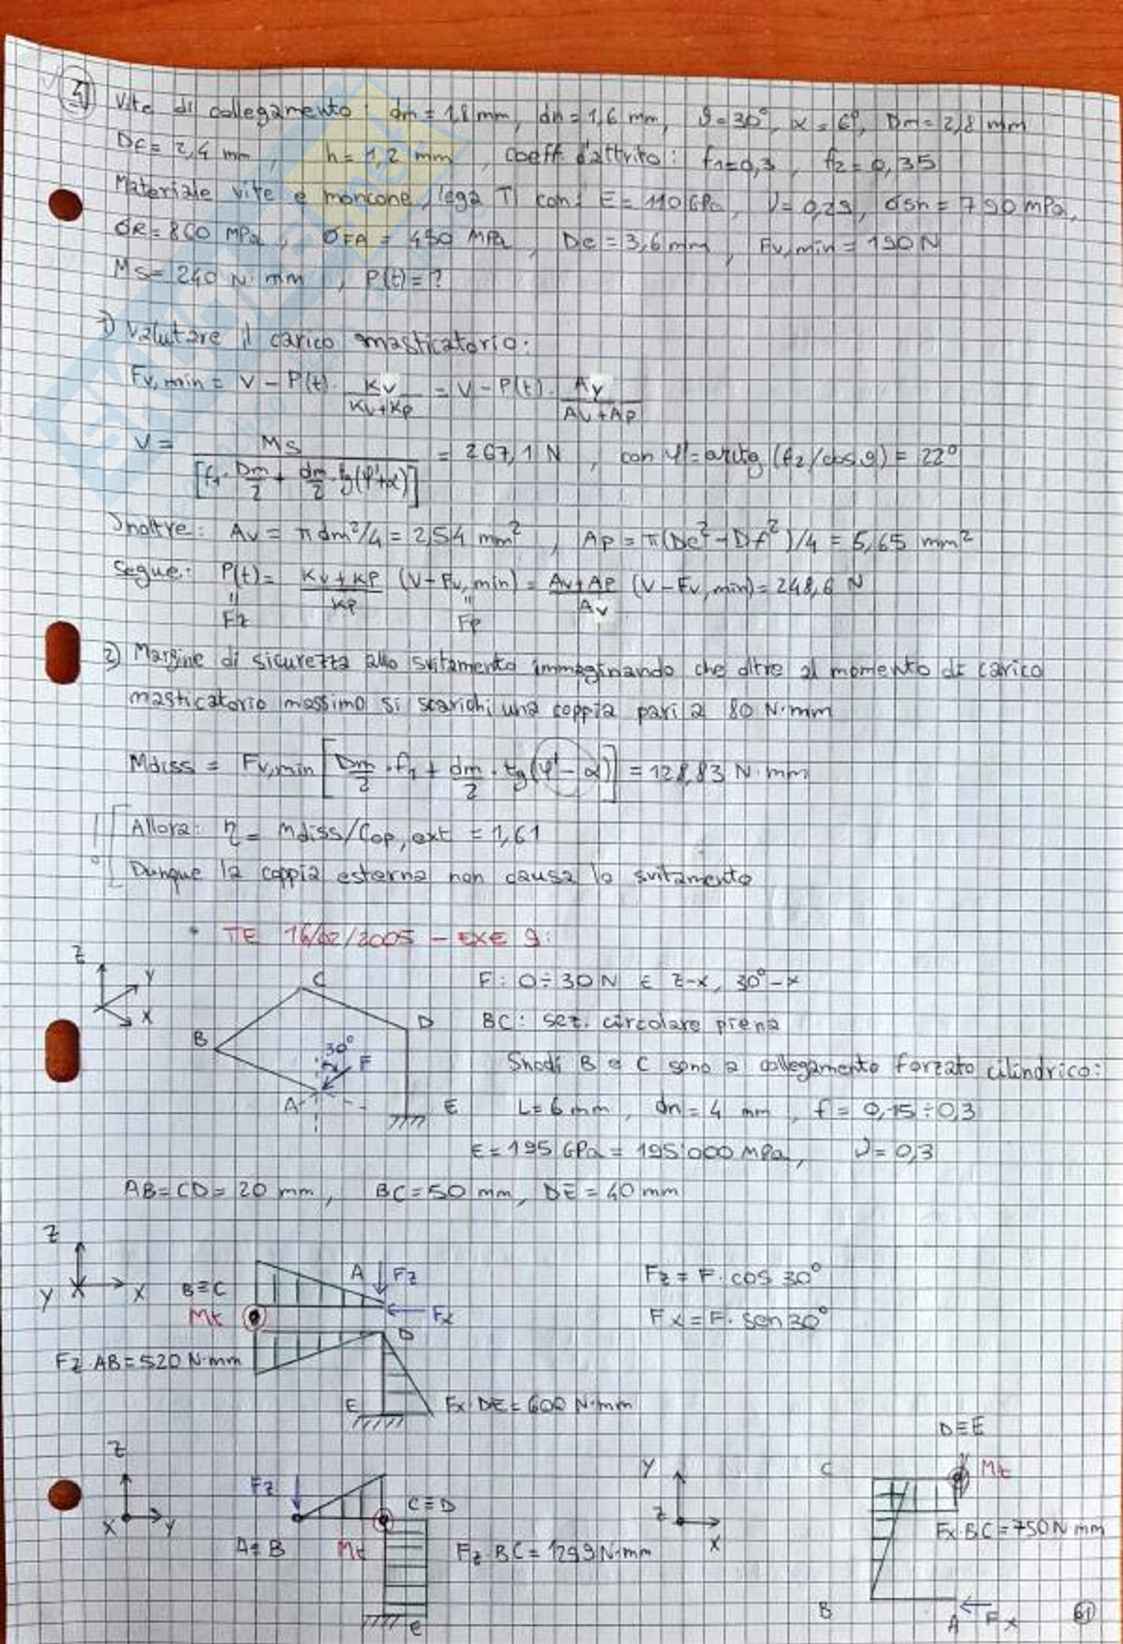 4) Vite di collegamento: dm = 1,8 mm, dn = 1,6 mm, θ = 30°, α = 6°, Dm = 2,8 mm
Df = 2,4 mm, h = 1,2 mm, coeff. d'attrito: f1 = 0,3, f2 = 0,35
Materiale vite e moncone, lega Ti con: E = 110 GPa, ν = 0,29, σsn = 790 MPa,
σR = 860 MPa, σFA = 430 MPa, De = 3,6 mm, Fv,min = 190 N
Ms = 240 N·mm, P(t) = ?
1) Valutare il carico masticatorio:
Fv,min = V - P(t) · Kv/(Kv+Kp) = V - P(t) · Av/(Av+Ap)
V = Ms/[f1 · Dm/2 + dm/2 · tg(φ'+α)] = 267,1 N, con φ' = arctg (f2/cosθ) = 22°
Inoltre: Av = π dm²/4 = 2,54 mm², Ap = π(De² - Df²)/4 = 5,65 mm²
Segue: P(t) = Kv+Kp/Kp (V - Fv,min) = Av+Ap/Av (V - Fv,min) = 248,6 N
Fz Fp
2) Margine di sicurezza allo svitamento immaginando che oltre al momento di carico
masticatorio massimo si scarichi una coppia pari a 80 N·mm
Mdiss = Fv,min [Dm/2 · f1 + dm/2 · tg(φ' - α)] = 128,83 N·mm
Allora: η = Mdiss/Cop,ext = 1,61
Dunque la coppia esterna non causa lo svitamento
• TE 16/02/2005 - EXE 9:
F: 0÷30 N ∈ z-x, 30°-x
BC: sez. circolare piena
Snodi B e C sono a collegamento forzato cilindrico:
L = 6 mm, dn = 4 mm, f = 0,15÷0,3
E = 195 GPa = 195'000 MPa, ν = 0,3
Z Y X
B C D E A 30° F
AB = CD = 20 mm, BC = 50 mm, DE = 40 mm
Z Y X
B≡C A Fz
Mt Fx
D
Fz = F · cos 30°
Fx = F · sen 30°
Fz·AB = 520 N·mm
E Fx·DE = 600 N·mm
Z X Y
Fz C≡D
A≡B Mt Fz·BC = 1299 N·mm
E
Y Z X
D≡E
C Mt
Fx·BC = 750 N mm
B A Fx
61